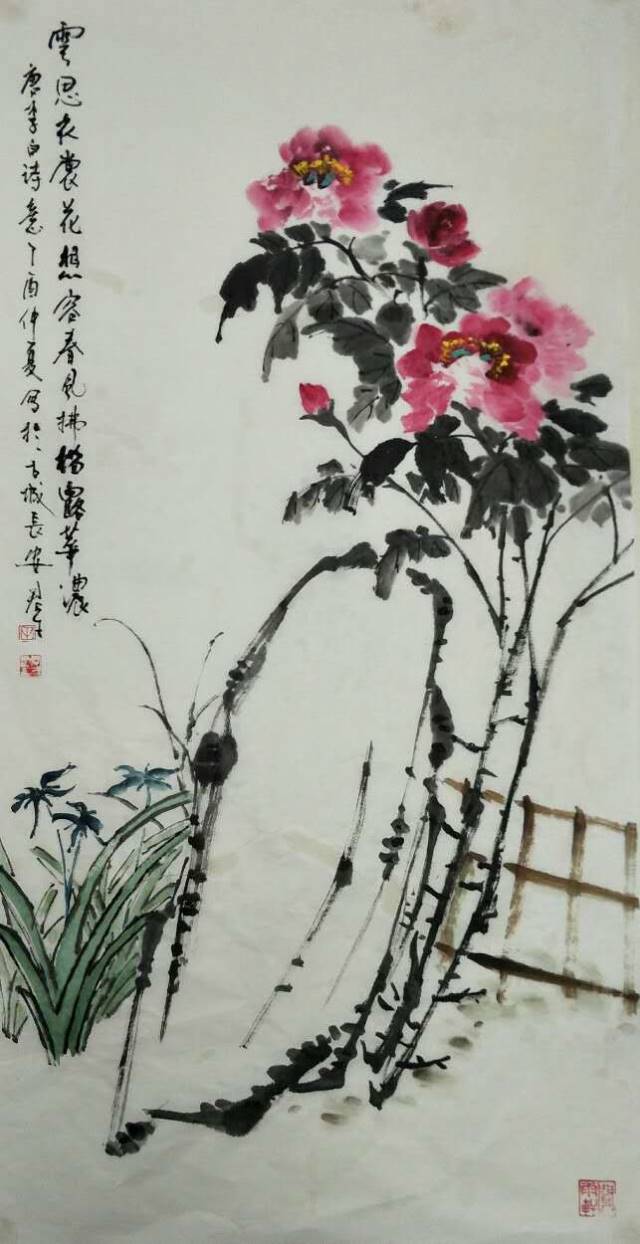 雲思衣裳花想容春风拂檻露華濃
唐李白诗意丁酉仲夏写於古城長安